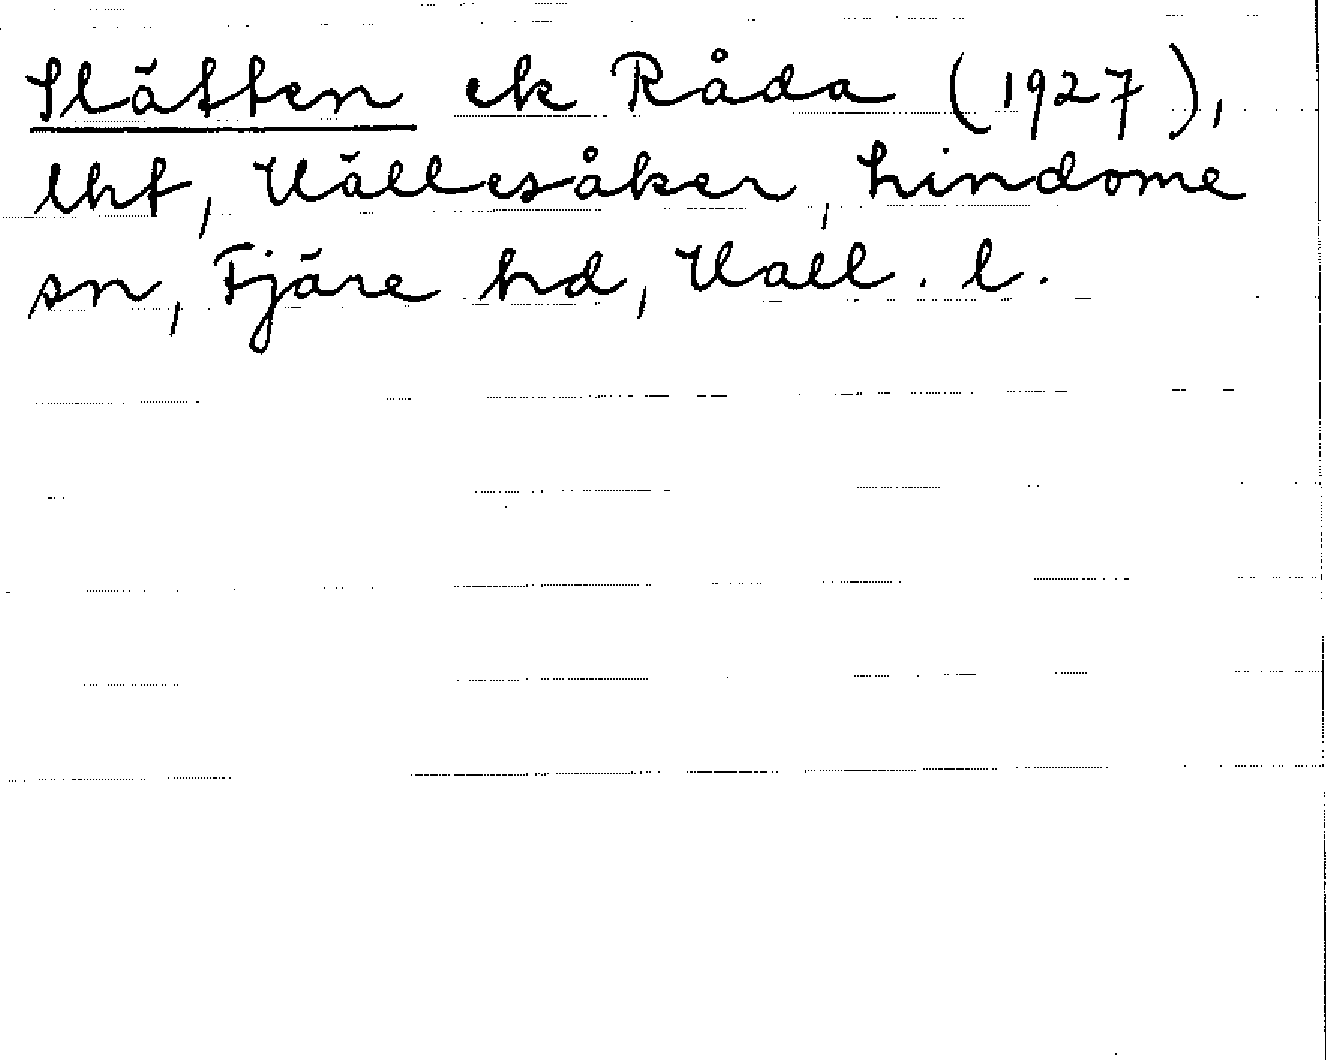 Slätten ek Råda (1927),
lht, Vällesåker, Lindome
sn, Fjäre hd, Hall. l.